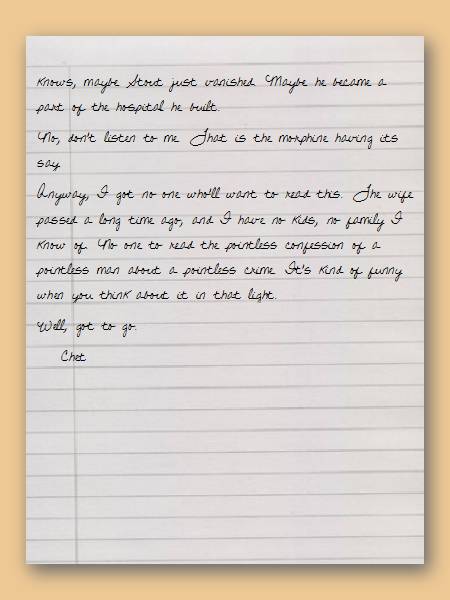 knows, maybe Stout just vanished Maybe he became a
part of the hospital he built.
No, don't listen to me That is the morphine having its
say
Anyway, I got no one who'll want to read this. The wife
passed a long time ago, and I have no kids, no family I
know of. No one to read the pointless confession of a
pointless man about a pointless crime It's kind of funny
when you think about it in that light.
Well, got to go.
Chet